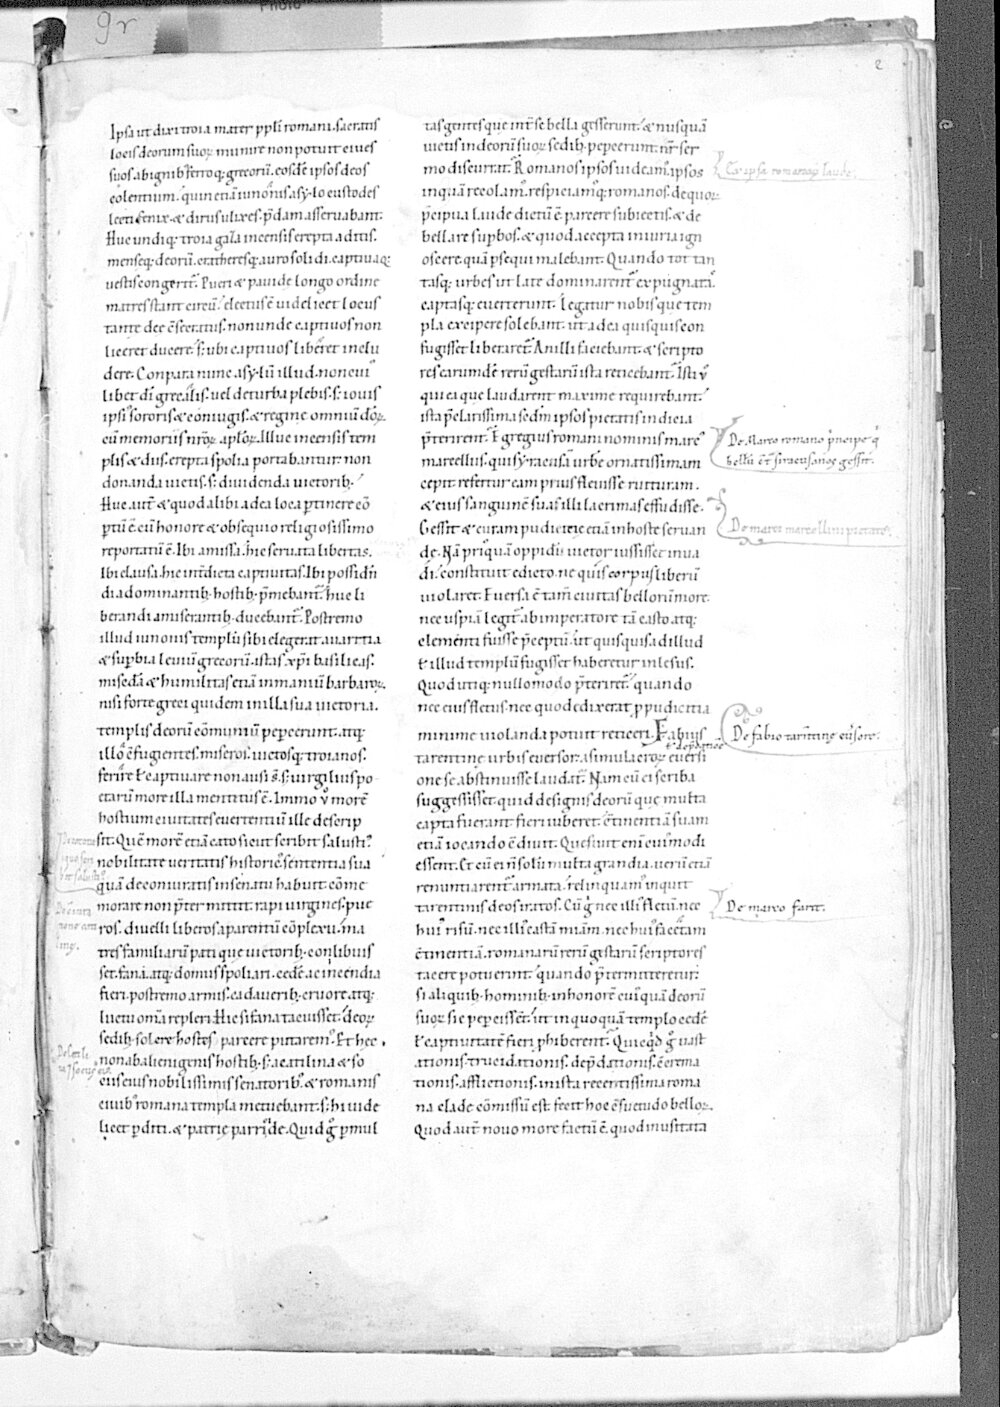 9r
2
Ipsa ut dixi troia mater ppłi romani. sacratis
locis deorum suoꝝ munire non potuit ciues
suos ab ignib; ferroq; grecorū. eosdē ipsos deos
colentium. quin etiā iunonis asylo custodes
lecti fenix. & dirus ulixes. p̄dam asseruabant.
Huc undiq; troia gaza incensis erepta aditis.
menseq; deorū. crateresq; auro solidi. captiuaq;
uestis congerit᷑. Pueri & pauide longo ordine
matres stant circū. electus ē uidelicet locus
tante dee c̄secratus. non unde captiuos non
liceret ducere. s; ubi captiuos liberet inclu
dere. Conpara nunc asylū illud. non cuiꝰ
libet dī gregalis. uel de turba plebis. s; iouis
ipsiꝰ sororis. & coniugis. & regine omniū deoꝝ.
cū memoriis nr̄oꝝ apl̄oꝝ. Illuc incensis tem
plis & diis erepta spolia portabantur. non
donanda uictis. s; diuidenda uictorib;.
Huc aut̄ & quod alibi ad ea loca ptinere cō
ptū ē. cū honore & obsequio religiosissimo
reportatū ē. Ibi amissa. hic seruata libertas.
Ibi clausa. hic int̄dicta captiuitas. Ibi possidn̄
di a dominantib; hostib; p̄mebant᷑. huc li
berandi a miserantib; ducebant᷑. Postremo
illud iunonis templū sibi elegerat auaritia
& supbia leuiū grecorū. istas xp̄i basilicas.
miscd̄a & humilitas etiā inmaniū barbaroꝝ.
nisi forte greci quidem in illa sua uictoria.
templis deorū cōmuniū pepercunt. atq;
illo c̄fugientes. miseros. uictosq; troianos.
ferire ł captiuare non ausi s̄. s; uirgilius po
etarū more illa mentitus ē. Immo ů morē
hostium ciuitates euertentiū ille descrip
sit. Quē morē etiā cato sicut scribit salustiꝰ
nobilitate ueritatis historicꝰ sententia sua
quā de coniuratis in senatu habuit. cōme
morare non p̄ter mittit. rapi uirgines. pue
ros. diuelli liberos a parentū cōplexu. ma
tres familiarū pati que uictorib; conlibuis
set. fana. atq; domus spoliari. cedē ac incendia
fieri. postremo armis. cadauerib; cruore. atq;
luctu om̄a repleri. Hic si fana tacuisset. deoꝝ
sedib; solere hostes parcere putarem᷒. Et hec
non ab alienigenis hostib; s; a catilina & so
ciis eius nobilissimis senatorib᷒. & romanis
ciuib᷒ romana templa metuebant. s; hi uide
licet pditi. & patrie parricide. Quid g̊ p mul
tas gentes que int̄ se bella gesserunt. & nusquā
uictis in deorū suoꝝ sedib; pepercunt. nr̄ ser
mo discurrat. Romanos ipsos uideam᷒. ipsos
inquā recolam᷒. respiciam᷒q; romanos. de quoꝝ
p̄cipua laude dictū ē. parcere subiectis. & de
bellare supbos. & quod accepta iniuria ign
oscere. quā psequi malebant. Quando tot tan
tasq; urbes ut late dominarent᷑ expugnatas
captasq; euerterunt. legatur nobis que tem
pla excipere solebant. ut ad ea quisquis con
fugisset liberaret᷑. An illi faciebant. & scripto
res earundē rerū gestarū ista reticebant. Isti ů
qui ea que laudarent maxime requirebant.
ista p̄clarissima secdm̄ ipsos pietatis indicia
p̄terirent. Egregius romani nominis marcꝰ
marcellus. qui syracusā urbē ornatissimam
cepit. refertur eam prius fleuisse ruituram.
& eius sanguinē suas illi lacrimas effudisse.
Gessit & curam pudicicie etiā in hoste seruan
de. Nā priꝰquā oppidū uictor iussisset inua
di. constituit edicto. ne quis corpus liberū
uiolaret. Euersa ē tam̄ ciuitas bellorū more.
nec uspiā legit᷑ ab imperatore tā casto. atq;
clementi fuisse p̄ceptū. ut quisquis ad illud
ł illud templū fugisset haberetur inlesus.
Quod utiq; nullo modo p̄teriret᷑. quando
nec eius fletus. nec quod edixerat p pudicitia
minime uiolanda potuit reticeri. Fabius
tarentine urbis euersor. a simulacroꝝ euersi
ł dep̄datiōe
one se abstinuisse laudat᷑. Nam cū ei scriba
suggessisset. quid de signis deorū que multa
capta fuerant fieri iuberet. c̄tinentiā suam
etiā iocando c̄diuit. Quesiuit eni cuiꝰmodi
essent. Et cū ei n̄ solū multa grandia. uerū etiā
renuntiarent᷑ armata. relinquam᷒ inquit
tarentinis deos iratos. Cū g̊ nec illiꝰ fletū. nec
huiꝰ risū. nec illiꝰ castā miam. nec huiꝰ facetam
c̄tinentiā. romanarū rerū gestarū scriptores
tacere potuerint. quando p̄termitteretur.
si aliquib; hominib; in honorē cuiꝰquā deorū
suoꝝ sic pepercissent. ut in quoquā templo cedē
ł captiuitatē fieri phiberent. Quicqd̄ g̊ uast
ationis. trucidationis. dep̄dationis. c̄crema
tionis. afflictionis. in ista recentissima roma
na clade cōmissū est. fecit hoc c̄suetudo belloꝝ.
Quod aut̄ nouo more factū ē. quod inusitata
De Marco romano p̄ncipe q̇
bellū ct̄ siracusanos gessit.
De marci marcellini pietate.
De fabio tarentine eu̇sore.
De marco